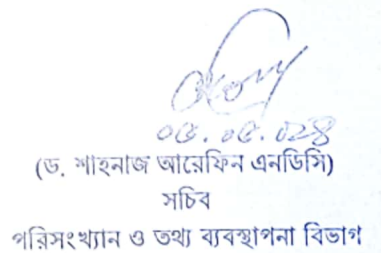 ০৫.০৫.০২৪
(ড. শাহনাজ আরেফিন এনডিসি)
সচিব
পরিসংখ্যান ও তথ্য ব্যবস্থাপনা বিভাগ